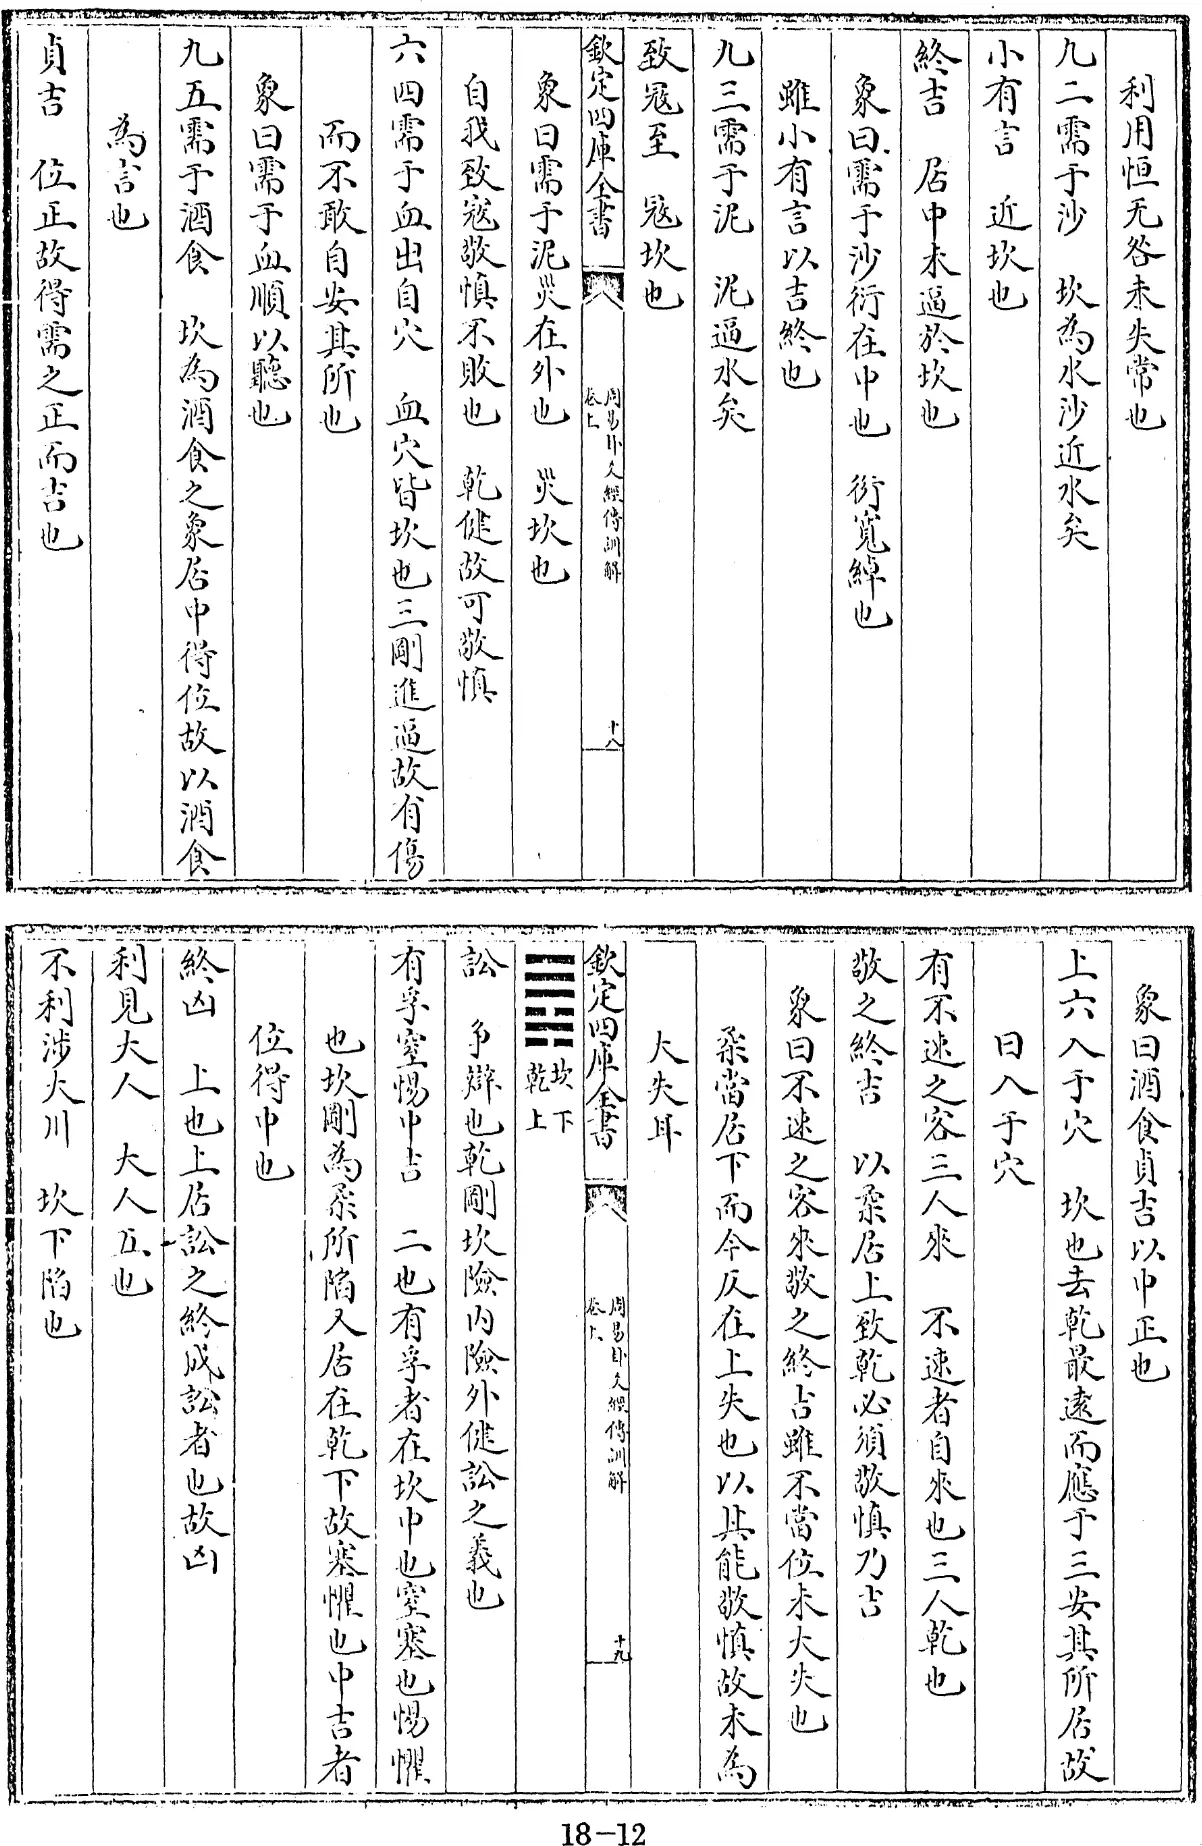 利用恒无咎未失常也
九二需于沙　坎為水沙近水矣
小有言　近坎也
終吉　居中未逼於坎也
象曰需于沙衍在中也　衍寛綽也
雖小有言以吉終也
九三需于泥　泥逼水矣
致冦至　冦坎也
欽定四庫全書　周易卦爻經傳訓解　卷上　十八
象曰需于泥災在外也　災坎也
自我致寇敬慎不敗也　乾健故可敬慎
六四需于血出自穴　血穴皆坎也三剛進逼故有傷
而不敢自安其所也
象曰需于血順以聽也
九五需于酒食　坎為酒食之象居中得位故以酒食
為言也
貞吉　位正故得需之正而吉也
象曰酒食貞吉以中正也
上六入于穴　坎也去乾最遠而應于三安其所居故
曰入于穴
有不速之客三人來　不速者自來也三人乾也
敬之終吉　以柔居上致乾必須敬慎乃吉
象曰不速之客來敬之終吉雖不當位未大失也
柔當居下而今反在上失也以其能敬慎故未為
大失耳
欽定四庫全書　周易卦爻經傳訓解　卷上　十九
䷅坎下乾上
訟　爭辯也乾剛坎險内險外健訟之義也
有孚窒惕中吉　二也有孚者在坎中也窒塞也惕懼
也坎剛為柔所陷又居在乾下故塞懼也中吉者
位得中也
終凶　上也上居訟之終成訟者也故凶
利見大人　大人五也
不利涉大川　坎下陷也
18-12